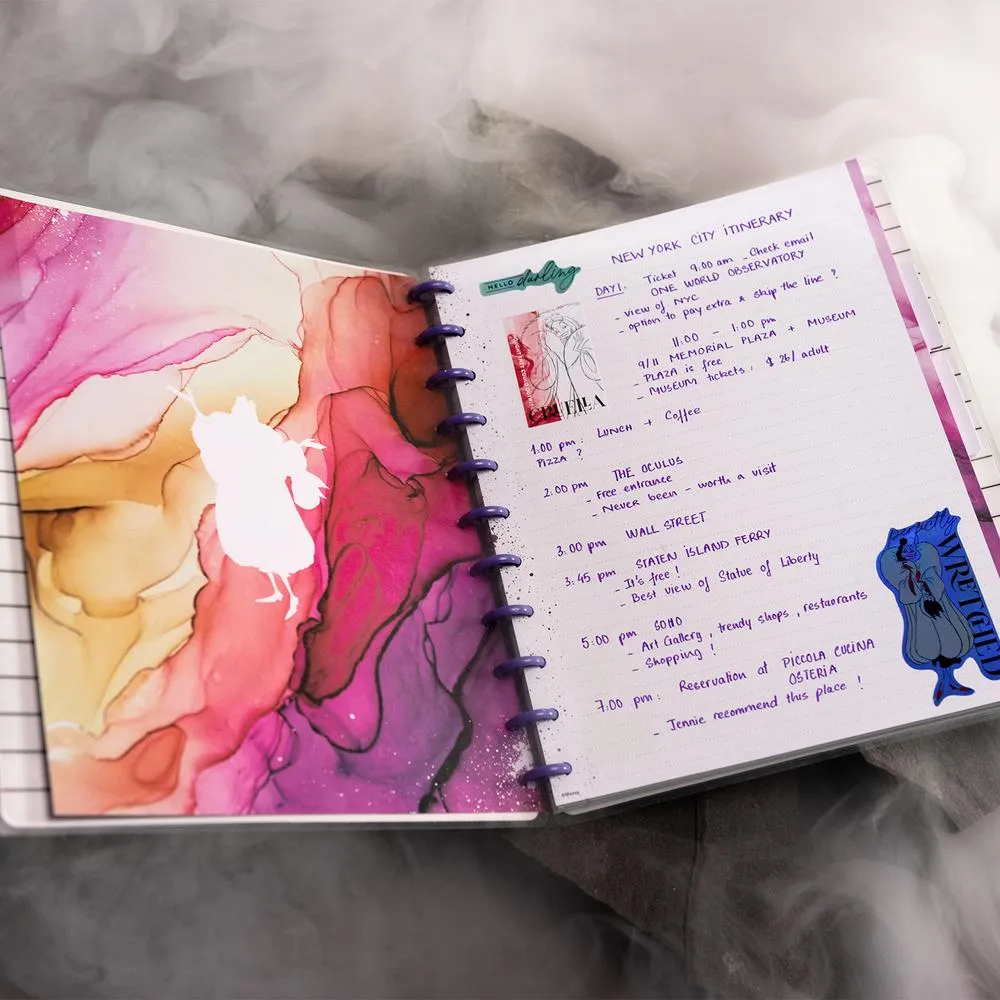 NEW YORK CITY ITINERARY
HELLO darling
DAY 1. Ticket 9:00 am - Check email
ONE WORLD OBSERVATORY
- view of NYC
- option to pay extra & skip the line ?
11:00 - 1:00 pm
9/11 MEMORIAL PLAZA + MUSEUM
- PLAZA is free
- MUSEUM tickets : $ 26/ adult
CRUELLA
1:00 pm : LUNCH + Coffee
PIZZA ?
2:00 pm THE OCULUS
- Free entrance
- Never been - worth a visit
3:00 pm WALL STREET
3:45 pm STATEN ISLAND FERRY
- It's free !
- Best view of Statue of Liberty
5:00 pm SOHO
- Art Gallery , trendy shops , restaurants
- Shopping !
7:00 pm : Reservation at PICCOLA CUCINA
OSTERIA
- Jennie recommend this place !
WRETCHED
©Disney